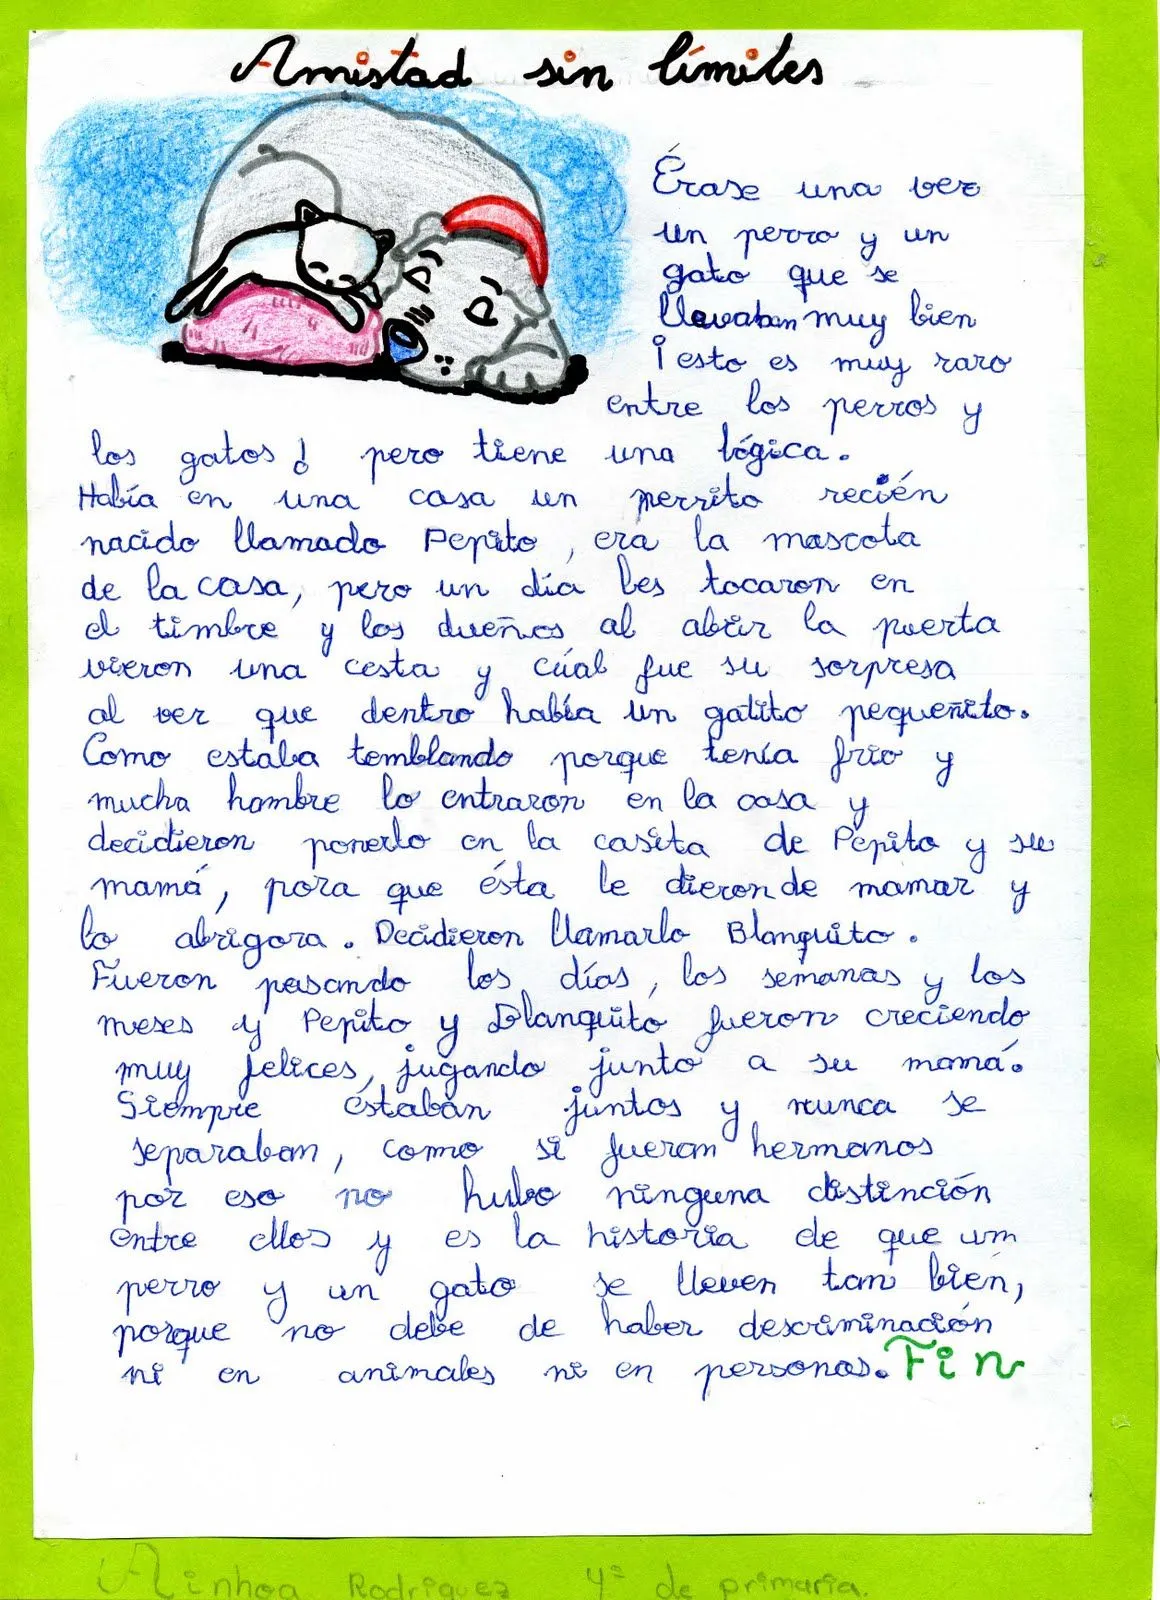 Amistad sin límites
Érase una vez
un perro y un
gato que se
llevaban muy bien
¡esto es muy raro
entre los perros y
los gatos! pero tiene una lógica.
Había en una casa un perrito recién
nacido llamado Pepito, era la mascota
de la casa, pero un día les tocaron en
el timbre y los dueños al abrir la puerta
vieron una cesta y cúal fue su sorpresa
al ver que dentro había un gatito pequeñito.
Como estaba temblando porque tenía frío y
mucha hambre lo entraron en la casa y
decidieron ponerlo en la casita de Pepito y su
mamá, para que ésta le dieron de mamar y
lo abrigara. Decidieron llamarlo Blanquito.
Fueron pasando los días, las semanas y los
meses y Pepito y Blanquito fueron creciendo
muy felices, jugando junto a su mamá.
Siempre estaban juntos y nunca se
separaban, como si fueran hermanos
por eso no hubo ninguna distinción
entre ellos y es la historia de que un
perro y un gato se lleven tan bien,
porque no debe de haber descriminación
ni en animales ni en personas. Fin
Ainhoa Rodriguez 4º de primaria.